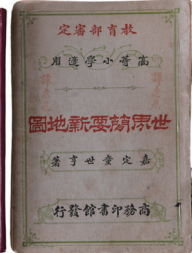 教育部審定
高等小學適用
世界簡要新地圖
嘉定童世亨著
商務印書館發行